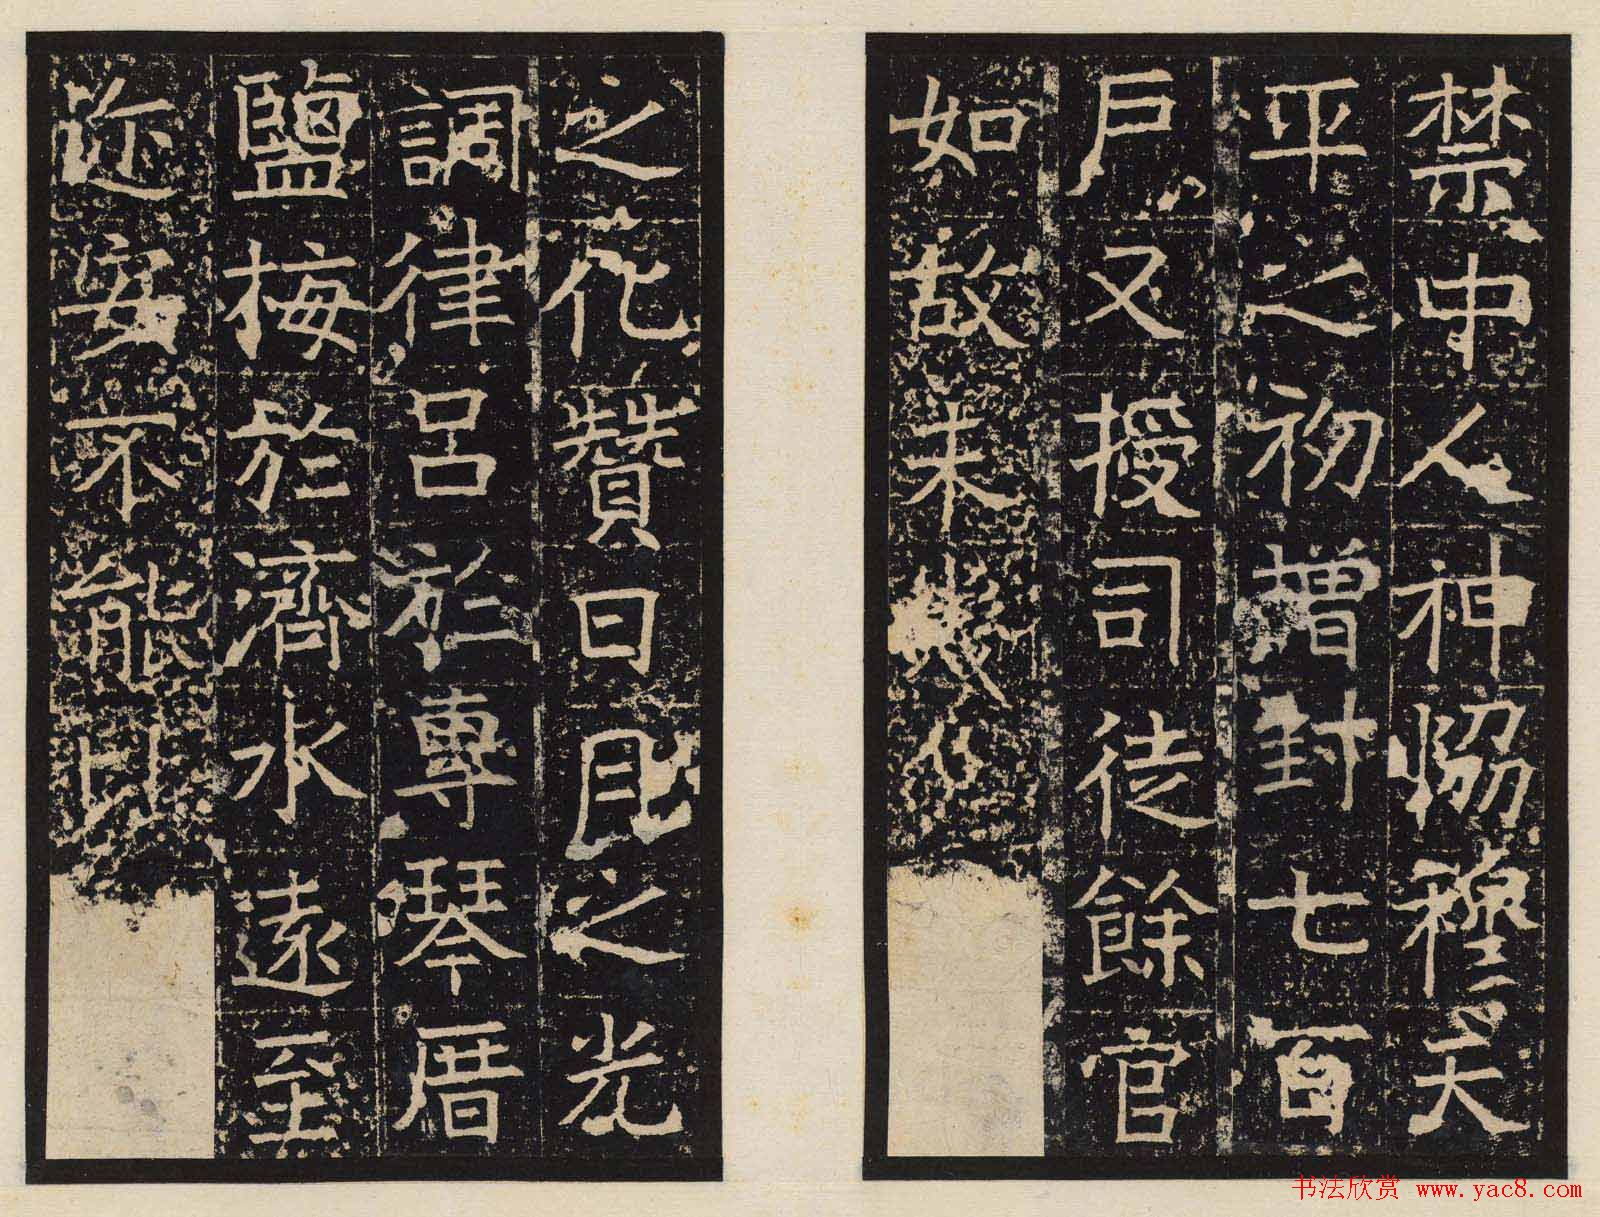 禁中人神恊穆天
平之初增封七百
戶又授司徒餘官
如故未幾以
之化贊日月之光
調律呂於專琴厝
鹽梅於濟水遠至
迩安不能比
书法欣赏 www.yac8.com